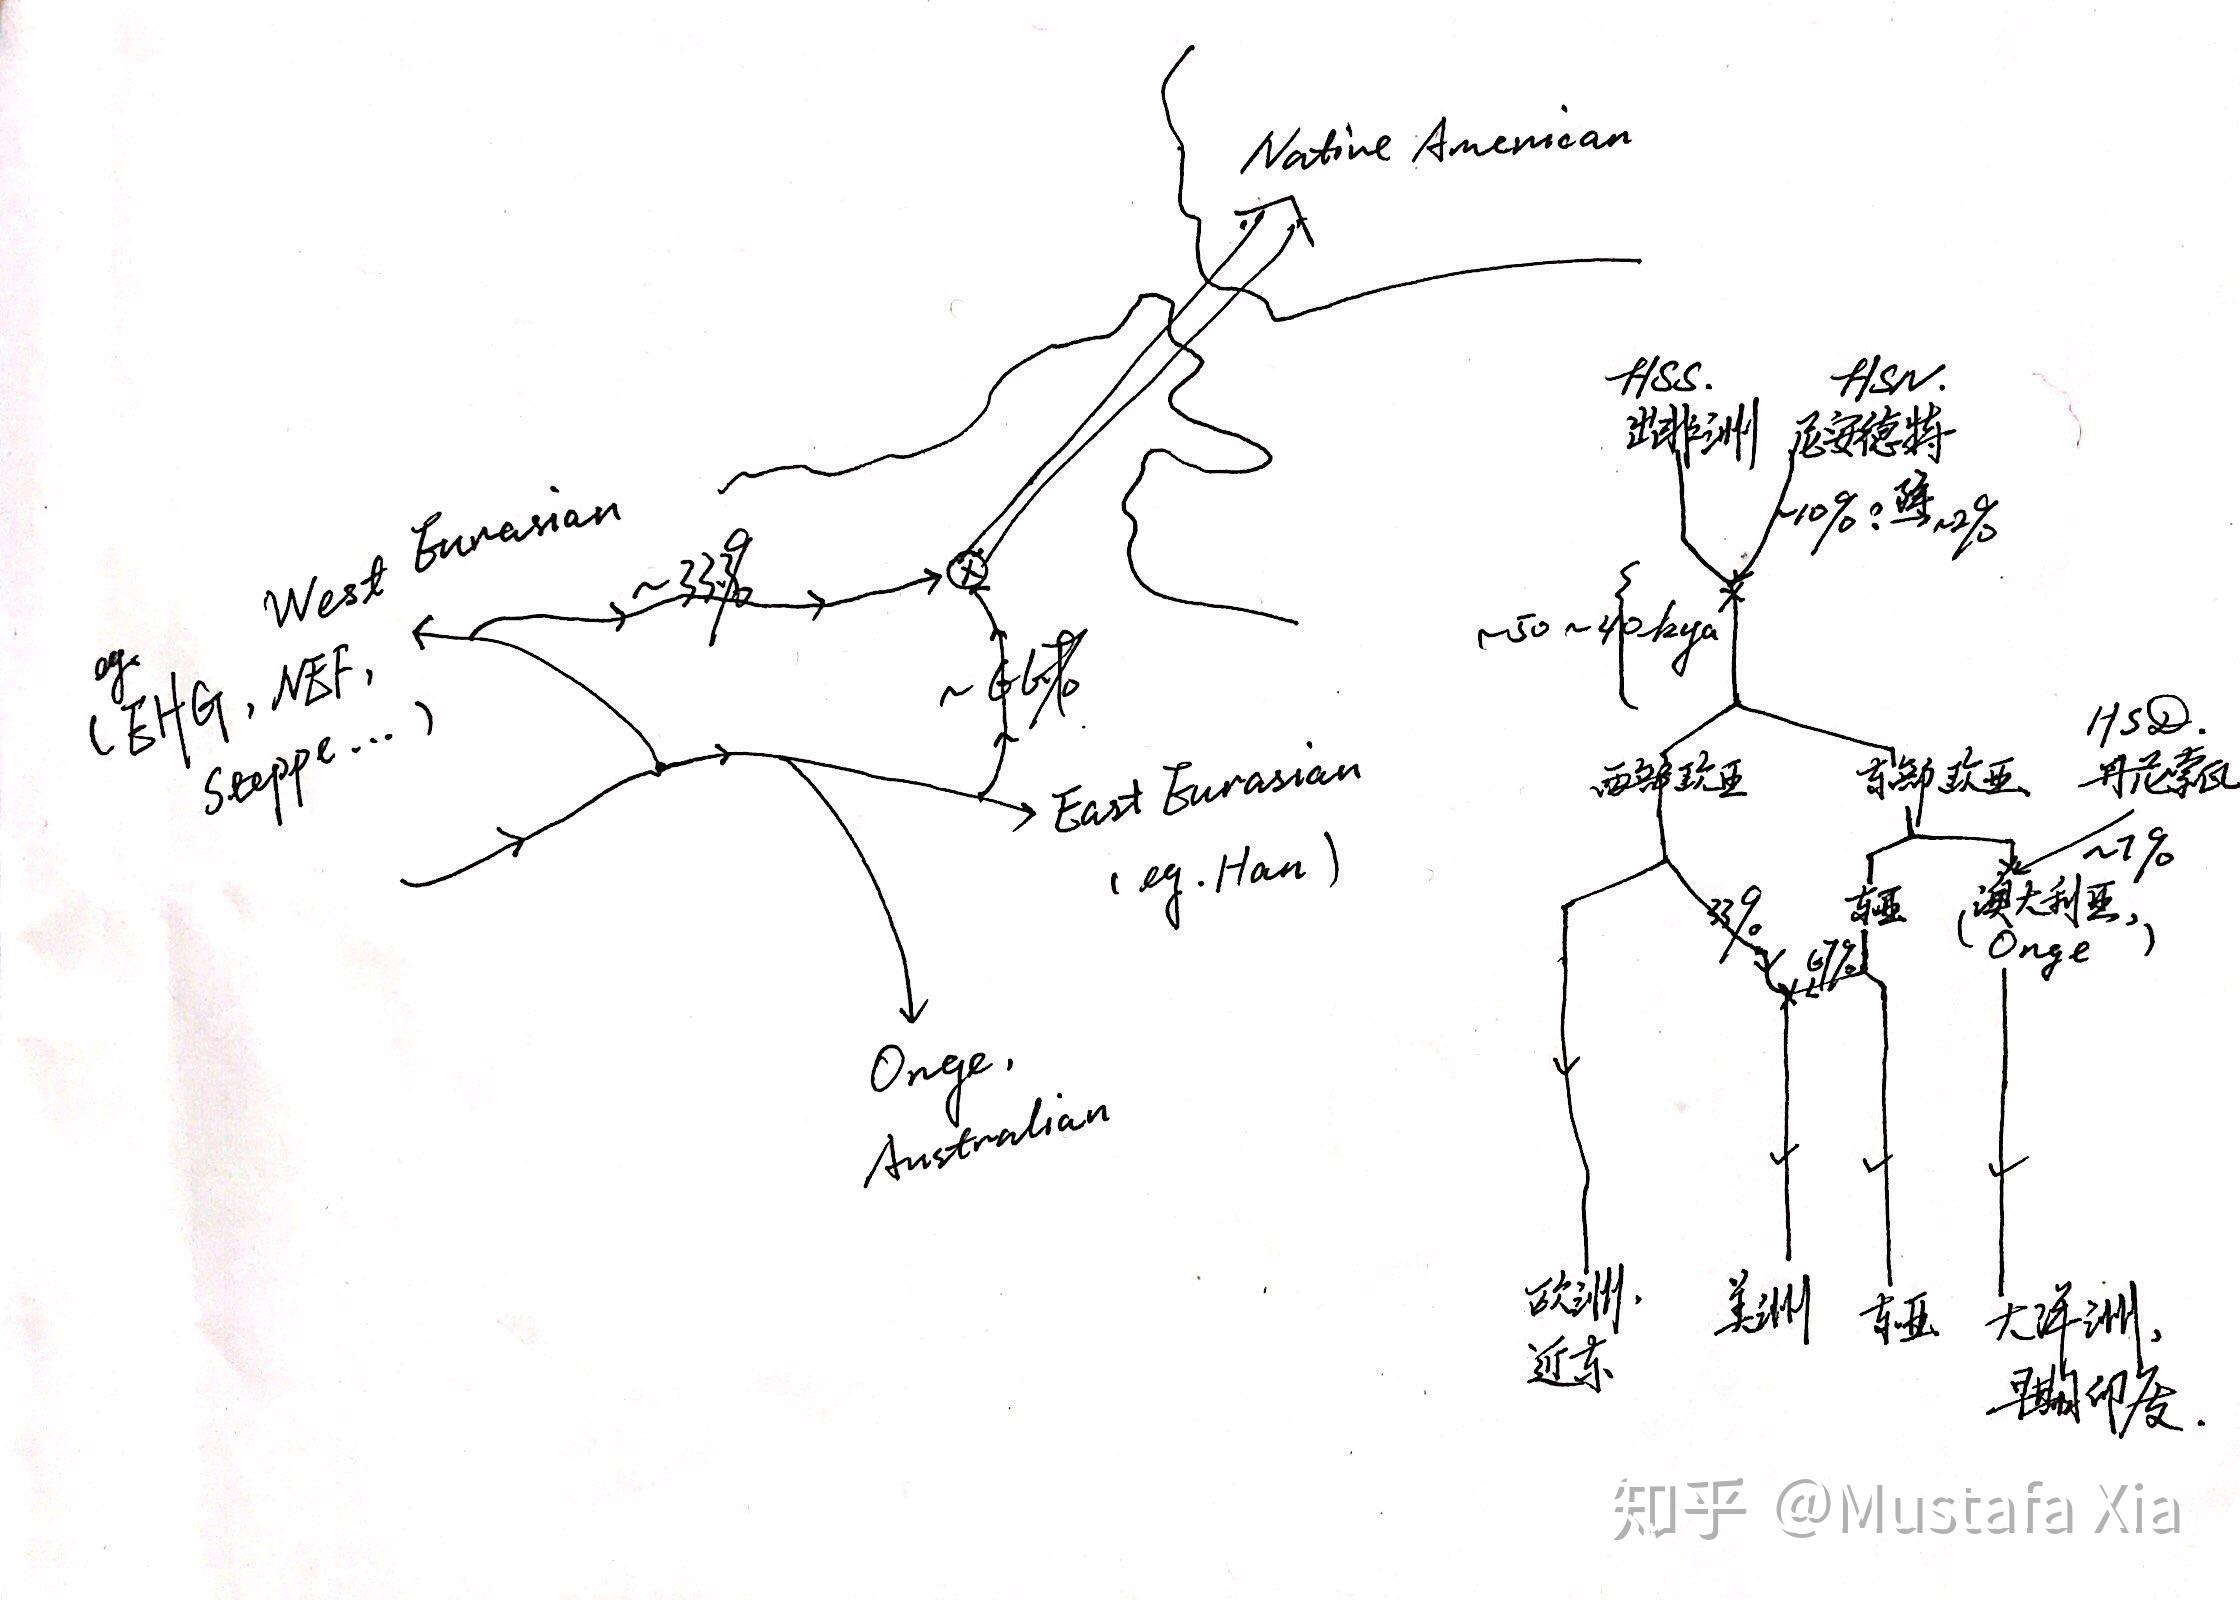 Native American
West Eurasian
eg.
(EHG, NEF,
Steppe...)
~33%
~66%
East Eurasian
(eg. Han)
Onge,
Australian
HSS.
出非洲
HSN.
尼安德特
~10%: 降~2%
~50~40kya
西部欧亚
东部欧亚
HSD.
丹尼索瓦
~7%
33%
67%
东亚
(澳大利亚,
Onge )
欧洲,
近东
美洲
东亚
大洋洲,
早期印度.
知乎 @Mustafa Xia